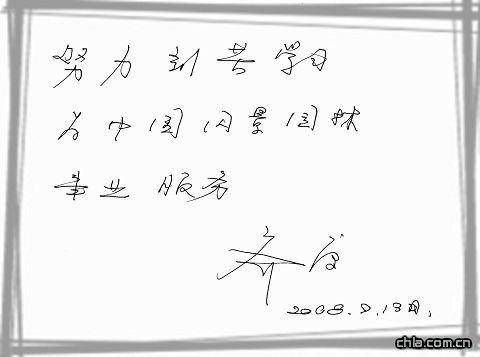 努力刻苦学习
为中国风景园林
事业服务
齐康
2008.9.13日.
chla.com.cn